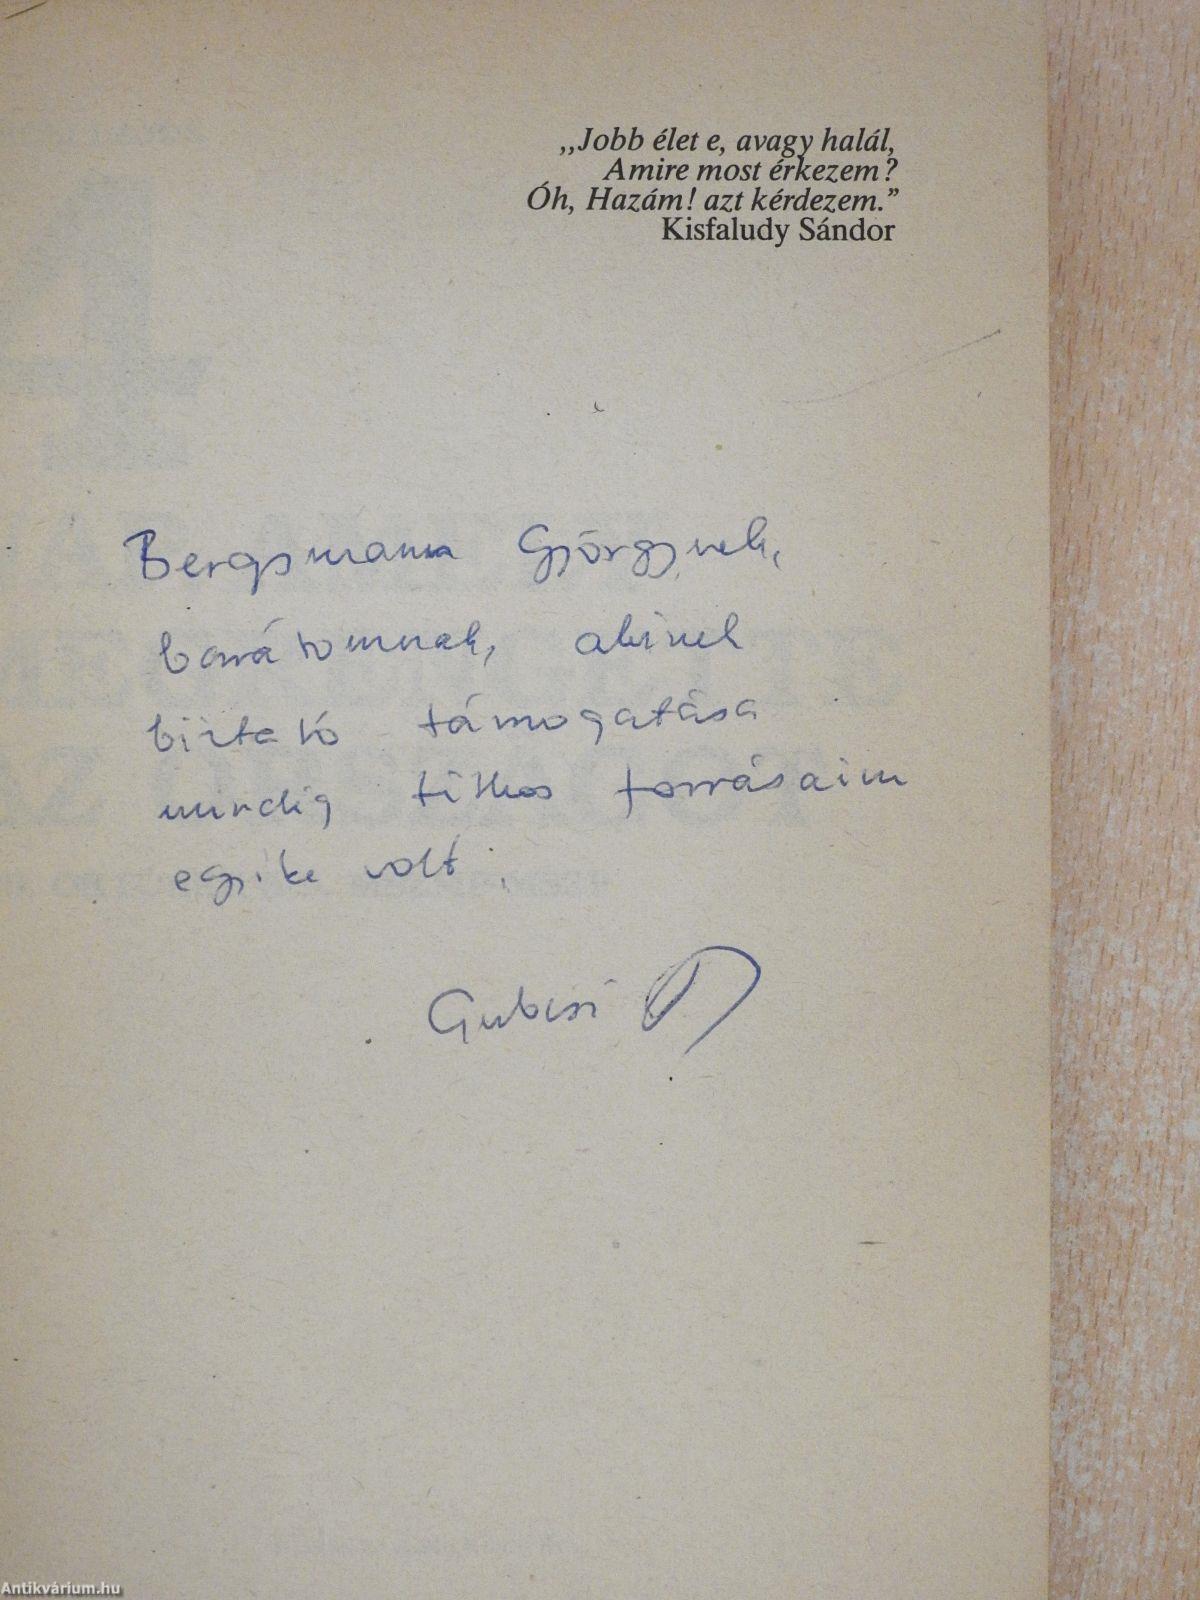 „Jobb élet e, avagy halál,
Amire most érkezem?
Óh, Hazám! azt kérdezem.”
Kisfaludy Sándor
Bergsmann Györgynek,
barátomnak, akinek
biztató támogatása
mindig titkos forrásaim
egyike volt.
Gubcsi
Antikvárium.hu